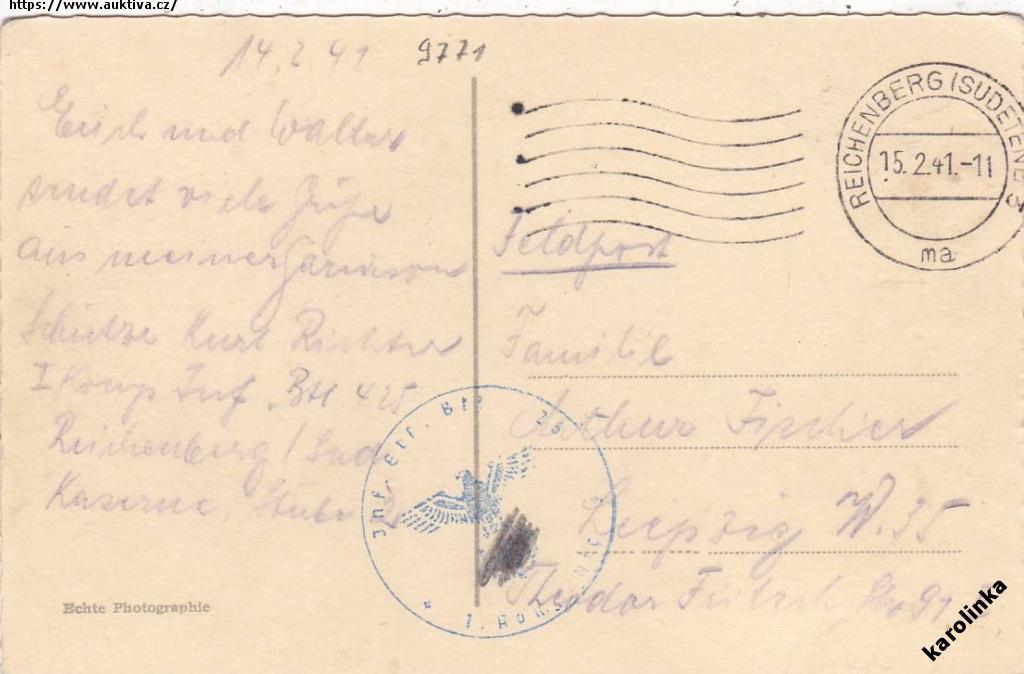 https://www.auktiva.cz/
14.2.41 9771
Erich und Walter
sendet viele Grüße
aus meiner Garnison
Schütze Kurt Richter
I Komp Inf. Btl 425
Reichenberg / Sud
Kaserne, Stube
Echte Photographie
REICHENBERG (SUDETENL) 3
15.2.41.-11
ma
Feldpost
Familie
Arthur Fischer
Leipzig W.35
Theodor Fritsch Str 91
Inf. Btl.
1. Komp
karolinka